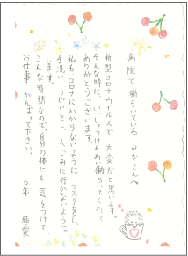 病院で働らいている みなさんへ
新型コロナウイルスで 大変だと思います。
そんな時だ、いっしょうけんめい働らいてくれて
ありがとうございます。
私も コロナにかからないように、マスクをし、
手洗い うがいをし、人ごみに行かないように、
します。
こんな時期なので自分の体にも 気をつけて
お仕事 がんばって下さい。